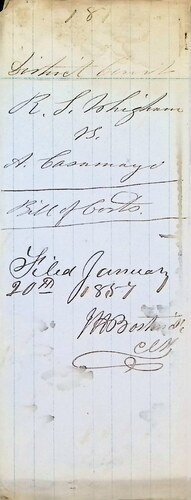 181
District Court
R. S. Whigham
vs.
A. Casamayo
Bill of Costs.
Filed January
20th 1857
Clk